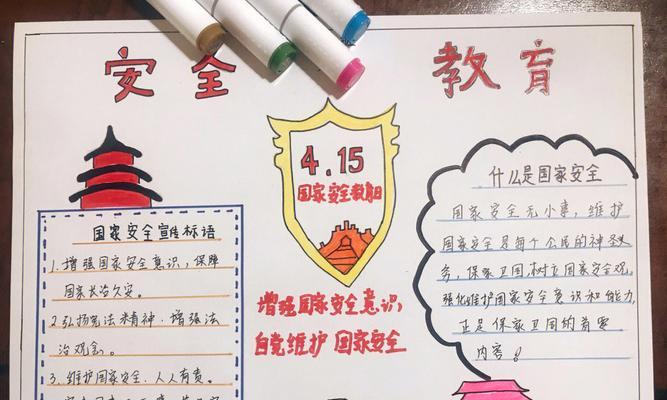 安全 教育
4.15
国家安全教育日
增强国家安全意识,
自觉维护 国家安全
国家安全宣传标语
1.增强国家安全意识,保障
国家长治久安。
2.弘扬宪法精神,增强法
治观念。
3.维护国家安全,人人有责。
什么是国家安全
国家安全无小事,维护
国家安全是每个公民的神圣义
务,保家卫国,树立国家安全观。
强化维护国家安全意识和能力,
正是保家卫国的首要
内容。